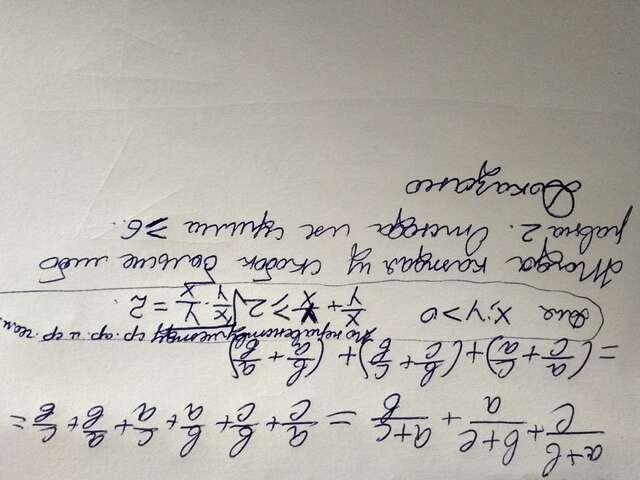 (a+b)/c + (b+c)/a + (a+c)/b = a/c + b/c + b/a + c/a + a/b + c/b =
= (a/c + c/a) + (b/c + c/b) + (b/a + a/b)
по неравенству ср. ар. и ср. геом.
Для x; y > 0 x/y + y/x ≥ 2√(x/y · y/x) = 2.
Тогда каждая из скобок больше либо
равна 2. Отсюда их сумма ≥ 6.
Доказано